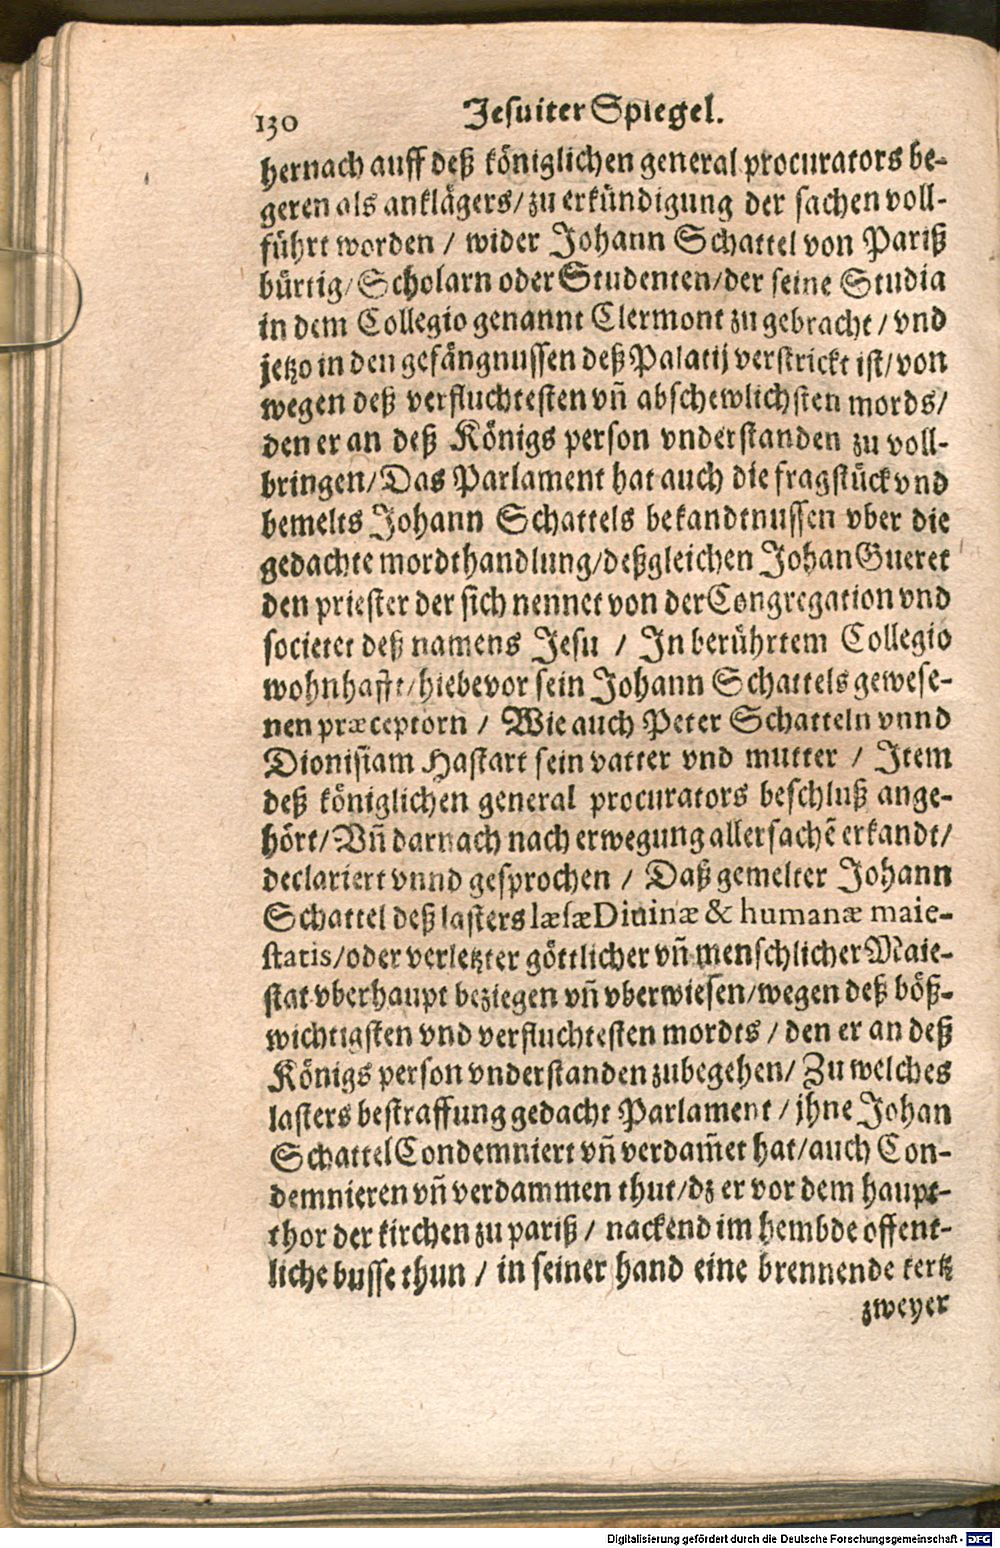 130 Jesuiter Spiegel.
hernach auff deß königlichen general procurators be-
geren als anklägers/ zu erkündigung der sachen voll-
führt worden / wider Johann Schattel von Pariß
bürtig/ Scholarn oder Studenten/ der seine Studia
in dem Collegio genannt Clermont zu gebracht / vnd
jetzo in den gefängnussen deß Palatij verstrickt ist/ von
wegen deß verfluchtesten vñ abschewlichsten mords/
den er an deß Königs person vnderstanden zu voll-
bringen/ Das Parlament hat auch die fragstück vnd
bemelts Johann Schattels bekandtnussen vber die
gedachte mordthandlung/ deßgleichen Johan Gueret
den priester der sich nennet von der Congregation vnd
societet deß namens Jesu / In berührtem Collegio
wohnhafft/ hiebevor sein Johann Schattels gewese-
nen præceptorn / Wie auch Peter Schatteln vnnd
Dionisiam Hastart sein vatter vnd mutter / Item
deß königlichen general procurators beschluß ange-
hört/ Vñ darnach nach erwegung aller sachē erkandt/
declariert vnnd gesprochen / Daß gemelter Johann
Schattel deß lasters læſæ Diuinæ & humanæ maie-
statis/ oder verletzter göttlicher vñ menschlicher Maie-
stat vberhaupt beziegen vñ vberwiesen/ wegen deß böß-
wichtigsten vnd verfluchtesten mordts / den er an deß
Königs person vnderstanden zubegehen/ Zu welches
lasters bestraffung gedacht Parlament / jhne Johan
Schattel Condemniert vñ verdam̃et hat/ auch Con-
demnieren vñ verdammen thut/ dz er vor dem haupt-
thor der kirchen zu pariß / nackend im hembde offent-
liche busse thun / in seiner hand eine brennende kertz
zweyer
Digitalisierung gefördert durch die Deutsche Forschungsgemeinschaft - DFG